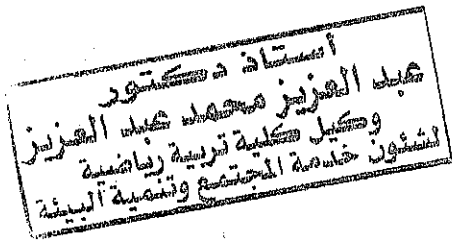 أستاذ دكتور
عبد العزيز محمد عبد العزيز
وكيل كلية تربية رياضية
لشئون خدمة المجتمع وتنمية البيئة